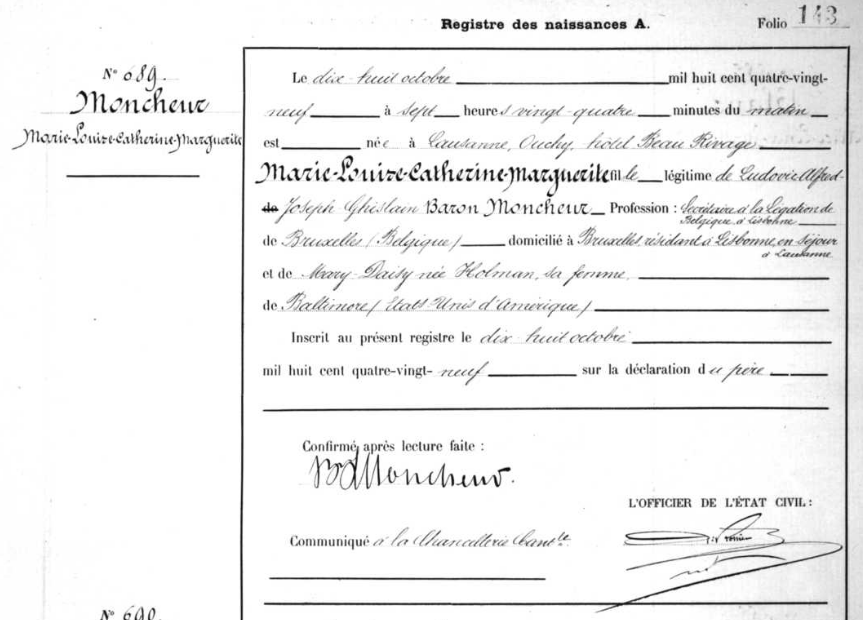 Registre des naissances A.
Folio 143
Nº 689.
Moncheur
Marie-Louise-Catherine-Marguerite
Le dix-huit octobre mil huit cent quatre-vingt-
neuf à sept heures vingt-quatre minutes du matin
est née à Lausanne, Ouchy, hôtel Beau Rivage
Marie-Louise-Catherine-Marguerite fille légitime de Ludovic Alfred-
de Joseph Ghislain Baron Moncheur Profession : Secrétaire à la Légation de
Belgique à Lisbonne
de Bruxelles (Belgique) domicilié à Bruxelles, résidant à Lisbonne, en séjour
à Lausanne
et de Mary-Daisy née Holman, sa femme,
de Baltimore (Etats-Unis d'Amérique)
Inscrit au présent registre le dix-huit octobre
mil huit cent quatre-vingt-neuf sur la déclaration du père
Confirmé après lecture faite :
Bn Moncheur.
L'OFFICIER DE L'ÉTAT CIVIL :
Communiqué à la Chancellerie Cantle.
Nº 690.